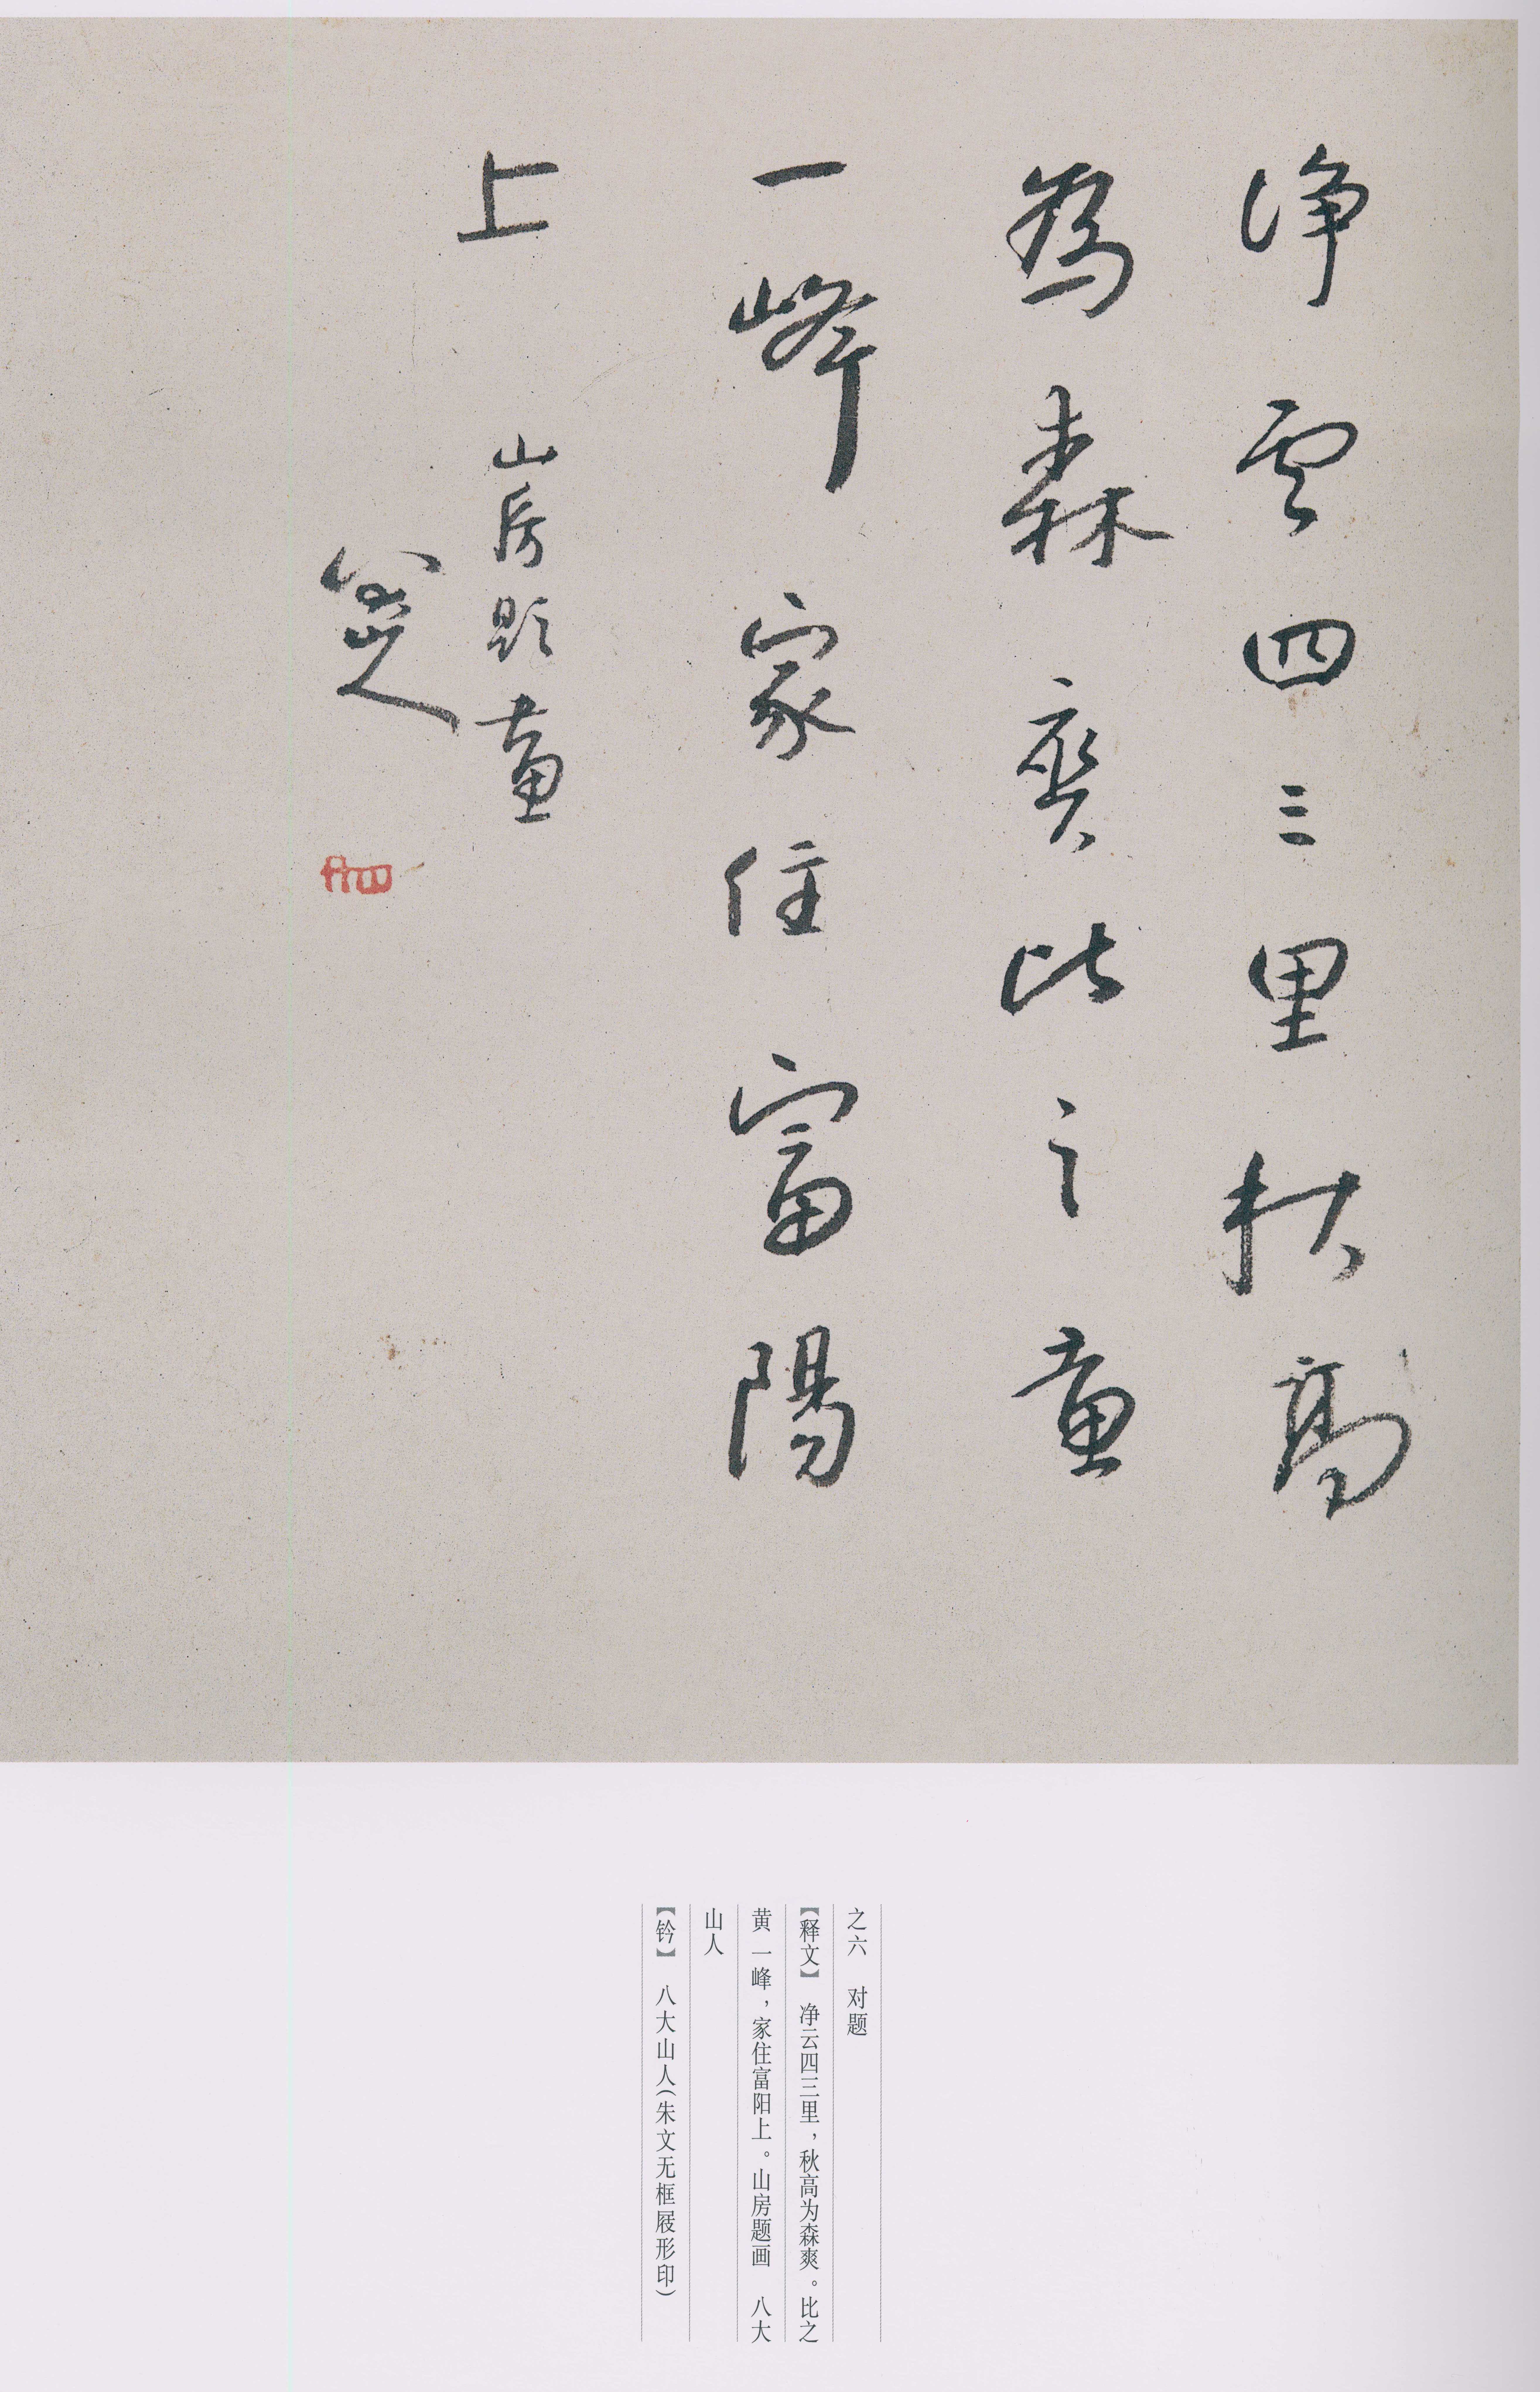 净云四三里秋高
為森爽比之黄
一峰家住富陽
上
山房題畫
八大山人
之六 对题
【释文】 净云四三里，秋高为森爽。比之
黄一峰，家住富阳上。山房题画 八大
山人
【钤】 八大山人（朱文无框屐形印）